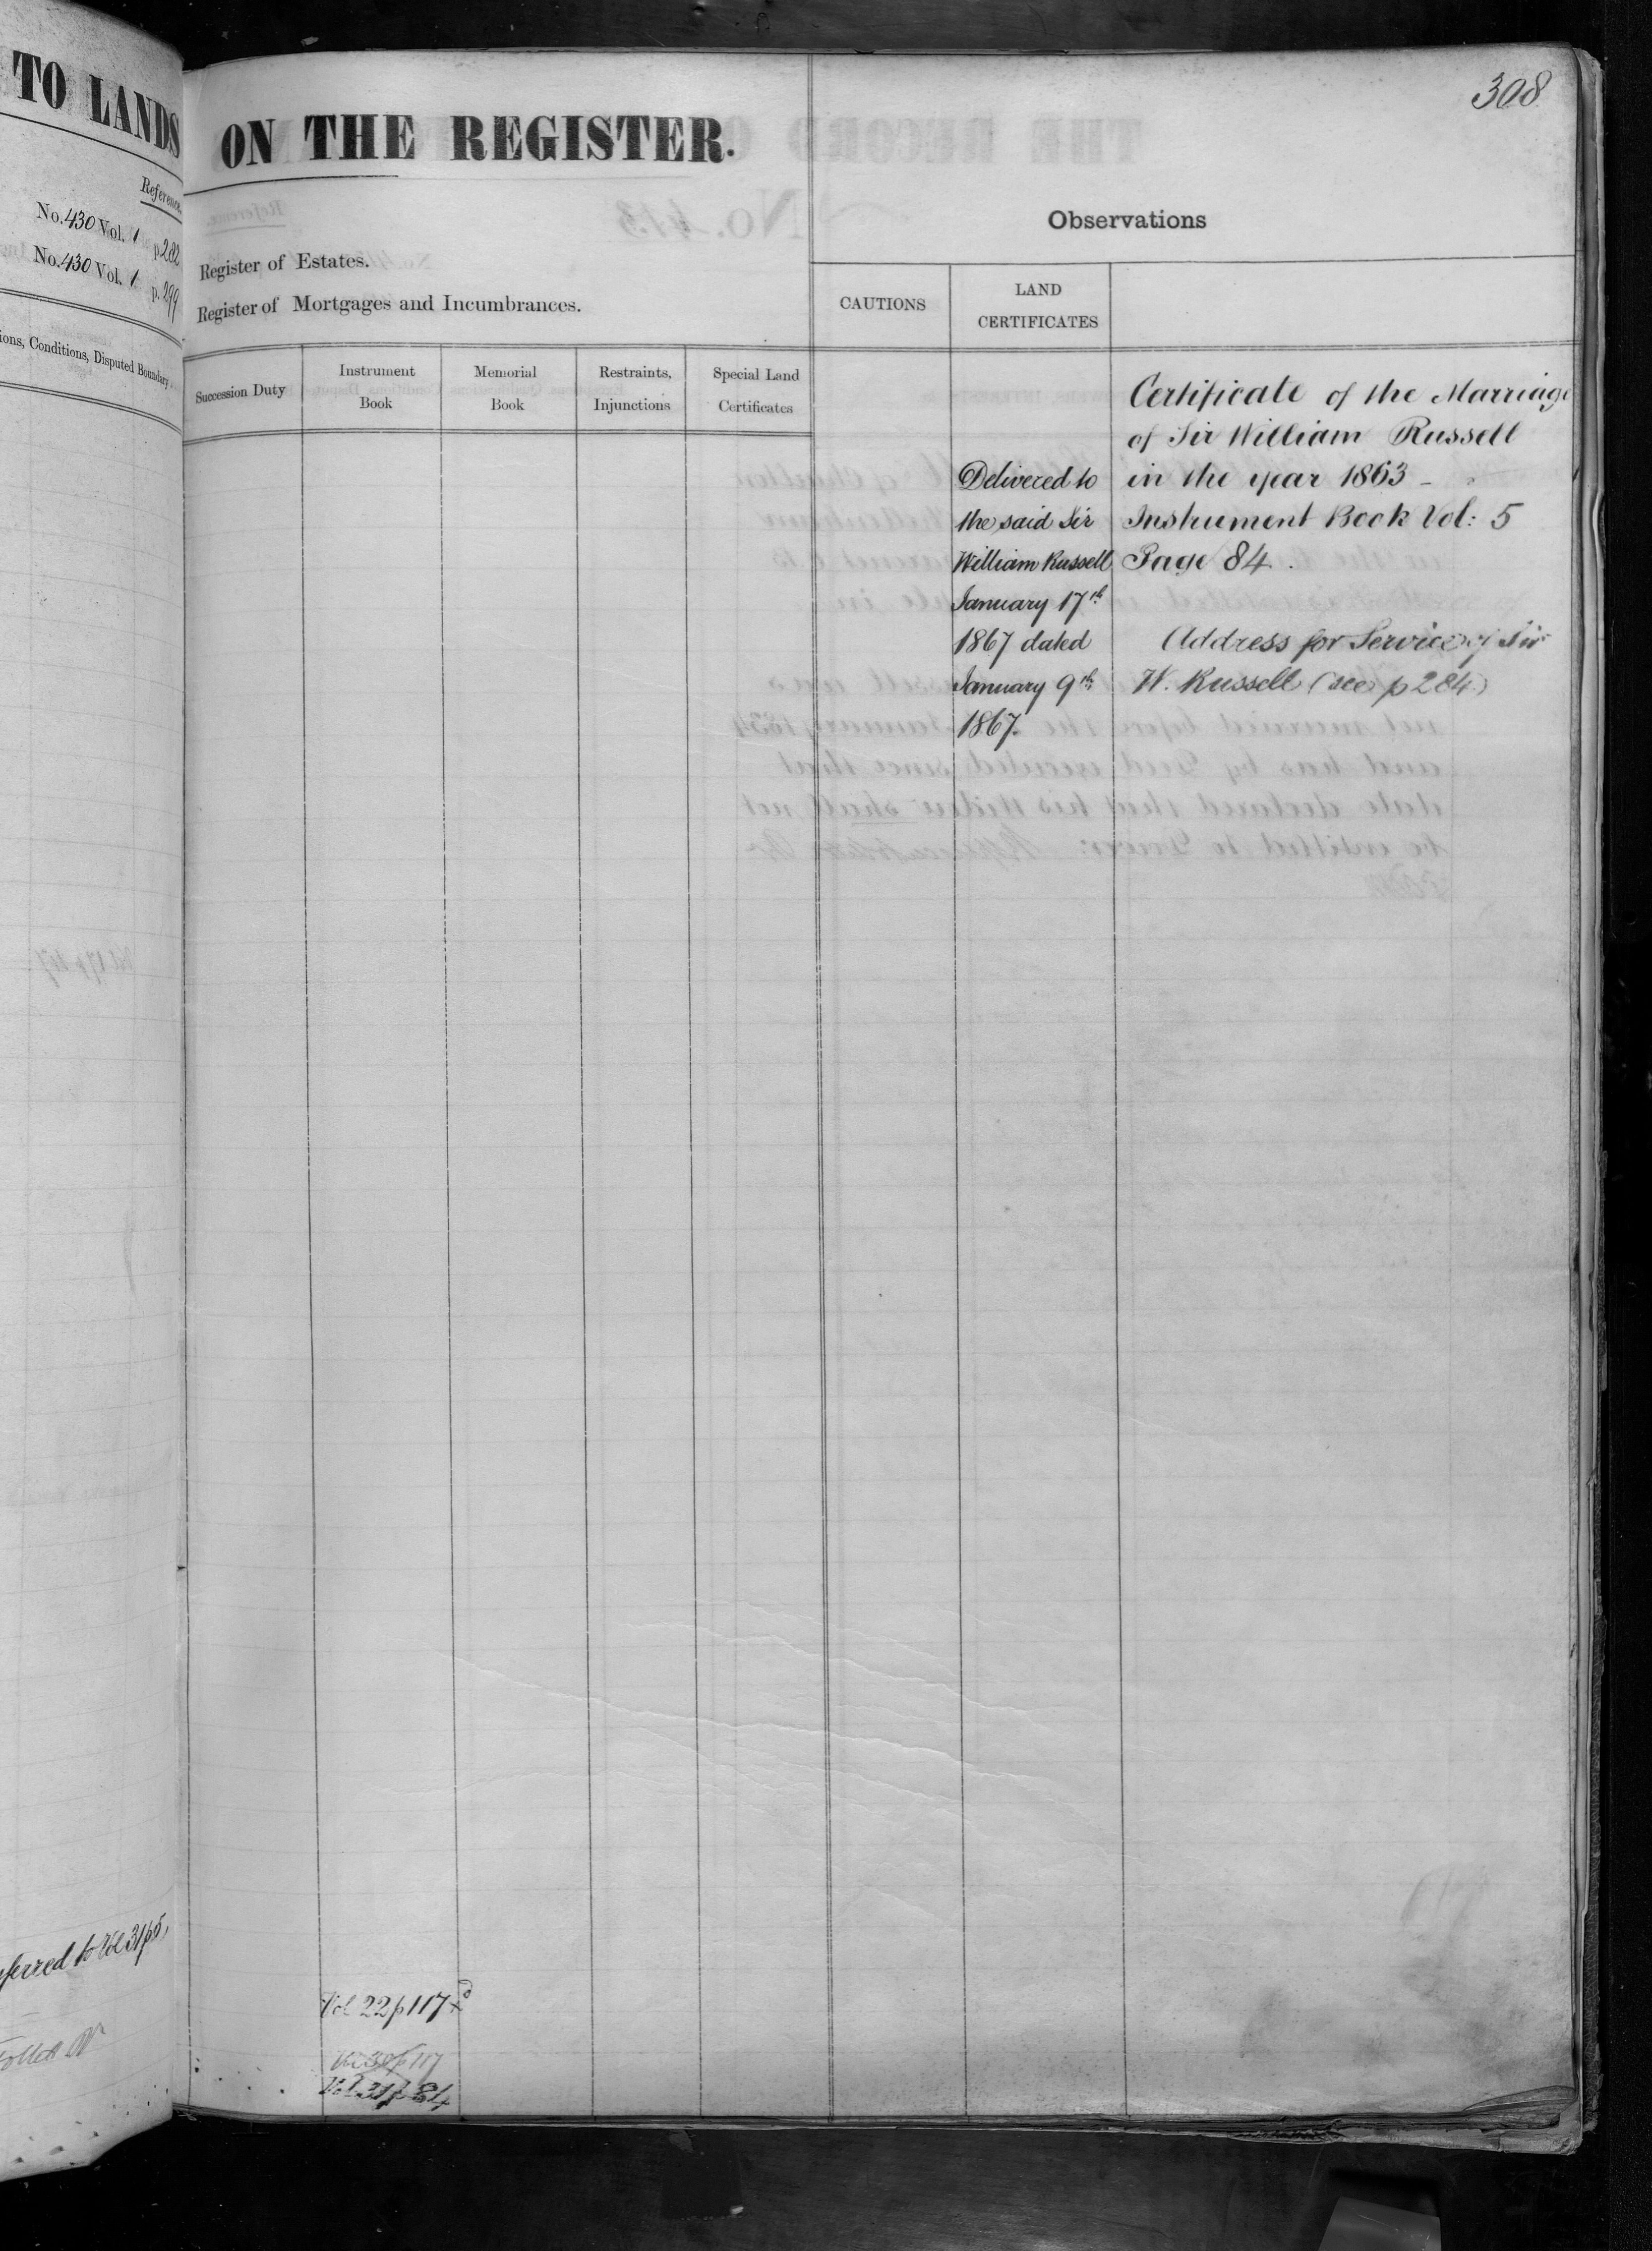 TO LANDS
Reference.
No. 430 Vol. 1 p. 282
No. 430 Vol. 1 p. 299
ions, Conditions, Disputed Boundary
ferred to Vol 31 p 5,
308
ON THE REGISTER.
Observations
Register of Estates.
Register of Mortgages and Incumbrances.
CAUTIONS
LAND
CERTIFICATES
Succession Duty
Instrument
Book
Memorial
Book
Restraints,
Injunctions
Special Land
Certificates
Delivered to
the said Sir
William Russell
January 17th
1867 dated
January 9th
1867.
Certificate of the Marriage
of Sir William Russell
in the year 1863 -
Instrument Book Vol: 5
Page 84.
Address for Service of Sir
W. Russell (see p 284.)
Vol 22 p 117
Vol 30 p 117
Vol 31 p 84